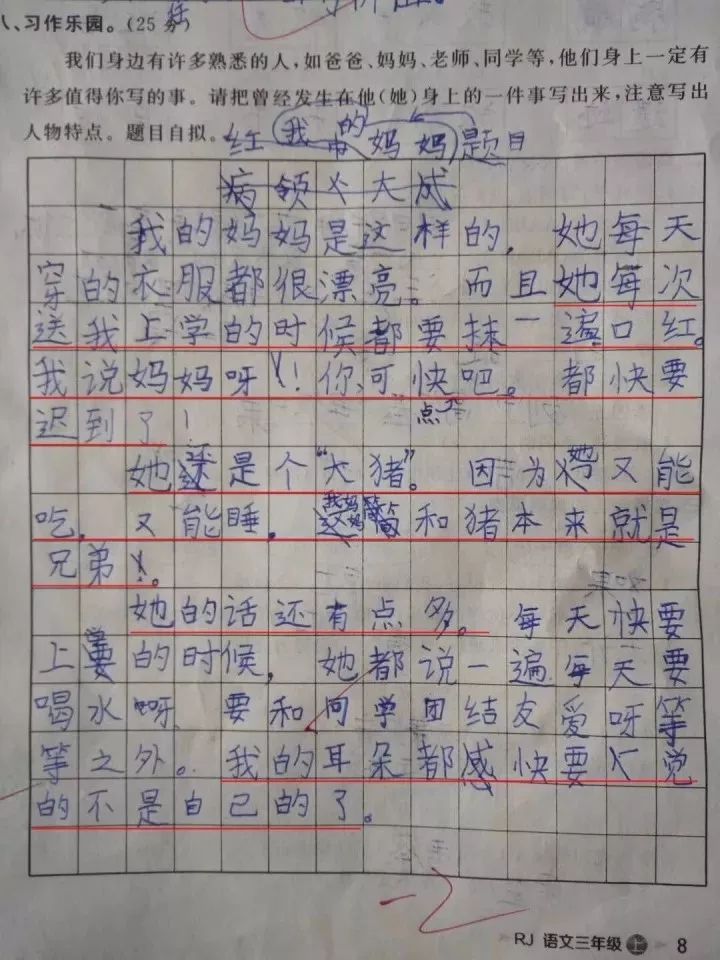 八、习作乐园。(25分)
我们身边有许多熟悉的人,如爸爸、妈妈、老师、同学等,他们身上一定有
许多值得你写的事。请把曾经发生在他(她)身上的一件事写出来,注意写出
人物特点。题目自拟。
我的妈妈 题目
我的妈妈是这样的,她每天
穿的衣服都很漂亮。而且她每次
送我上学的时候都要抹一遍口红。
我说妈妈呀!你可快点吧。都快要
迟到了!
她还是个“大猪”。因为她又能
吃,又能睡,我妈妈简和猪本来就是
兄弟。
她的话还有点多。每天快要
上学的时候,她都说一遍每天要
喝水呀,要和同学团结友爱呀等
等之外。我的耳朵都感快要觉
的不是自己的了。
RJ 语文三年级 上 8